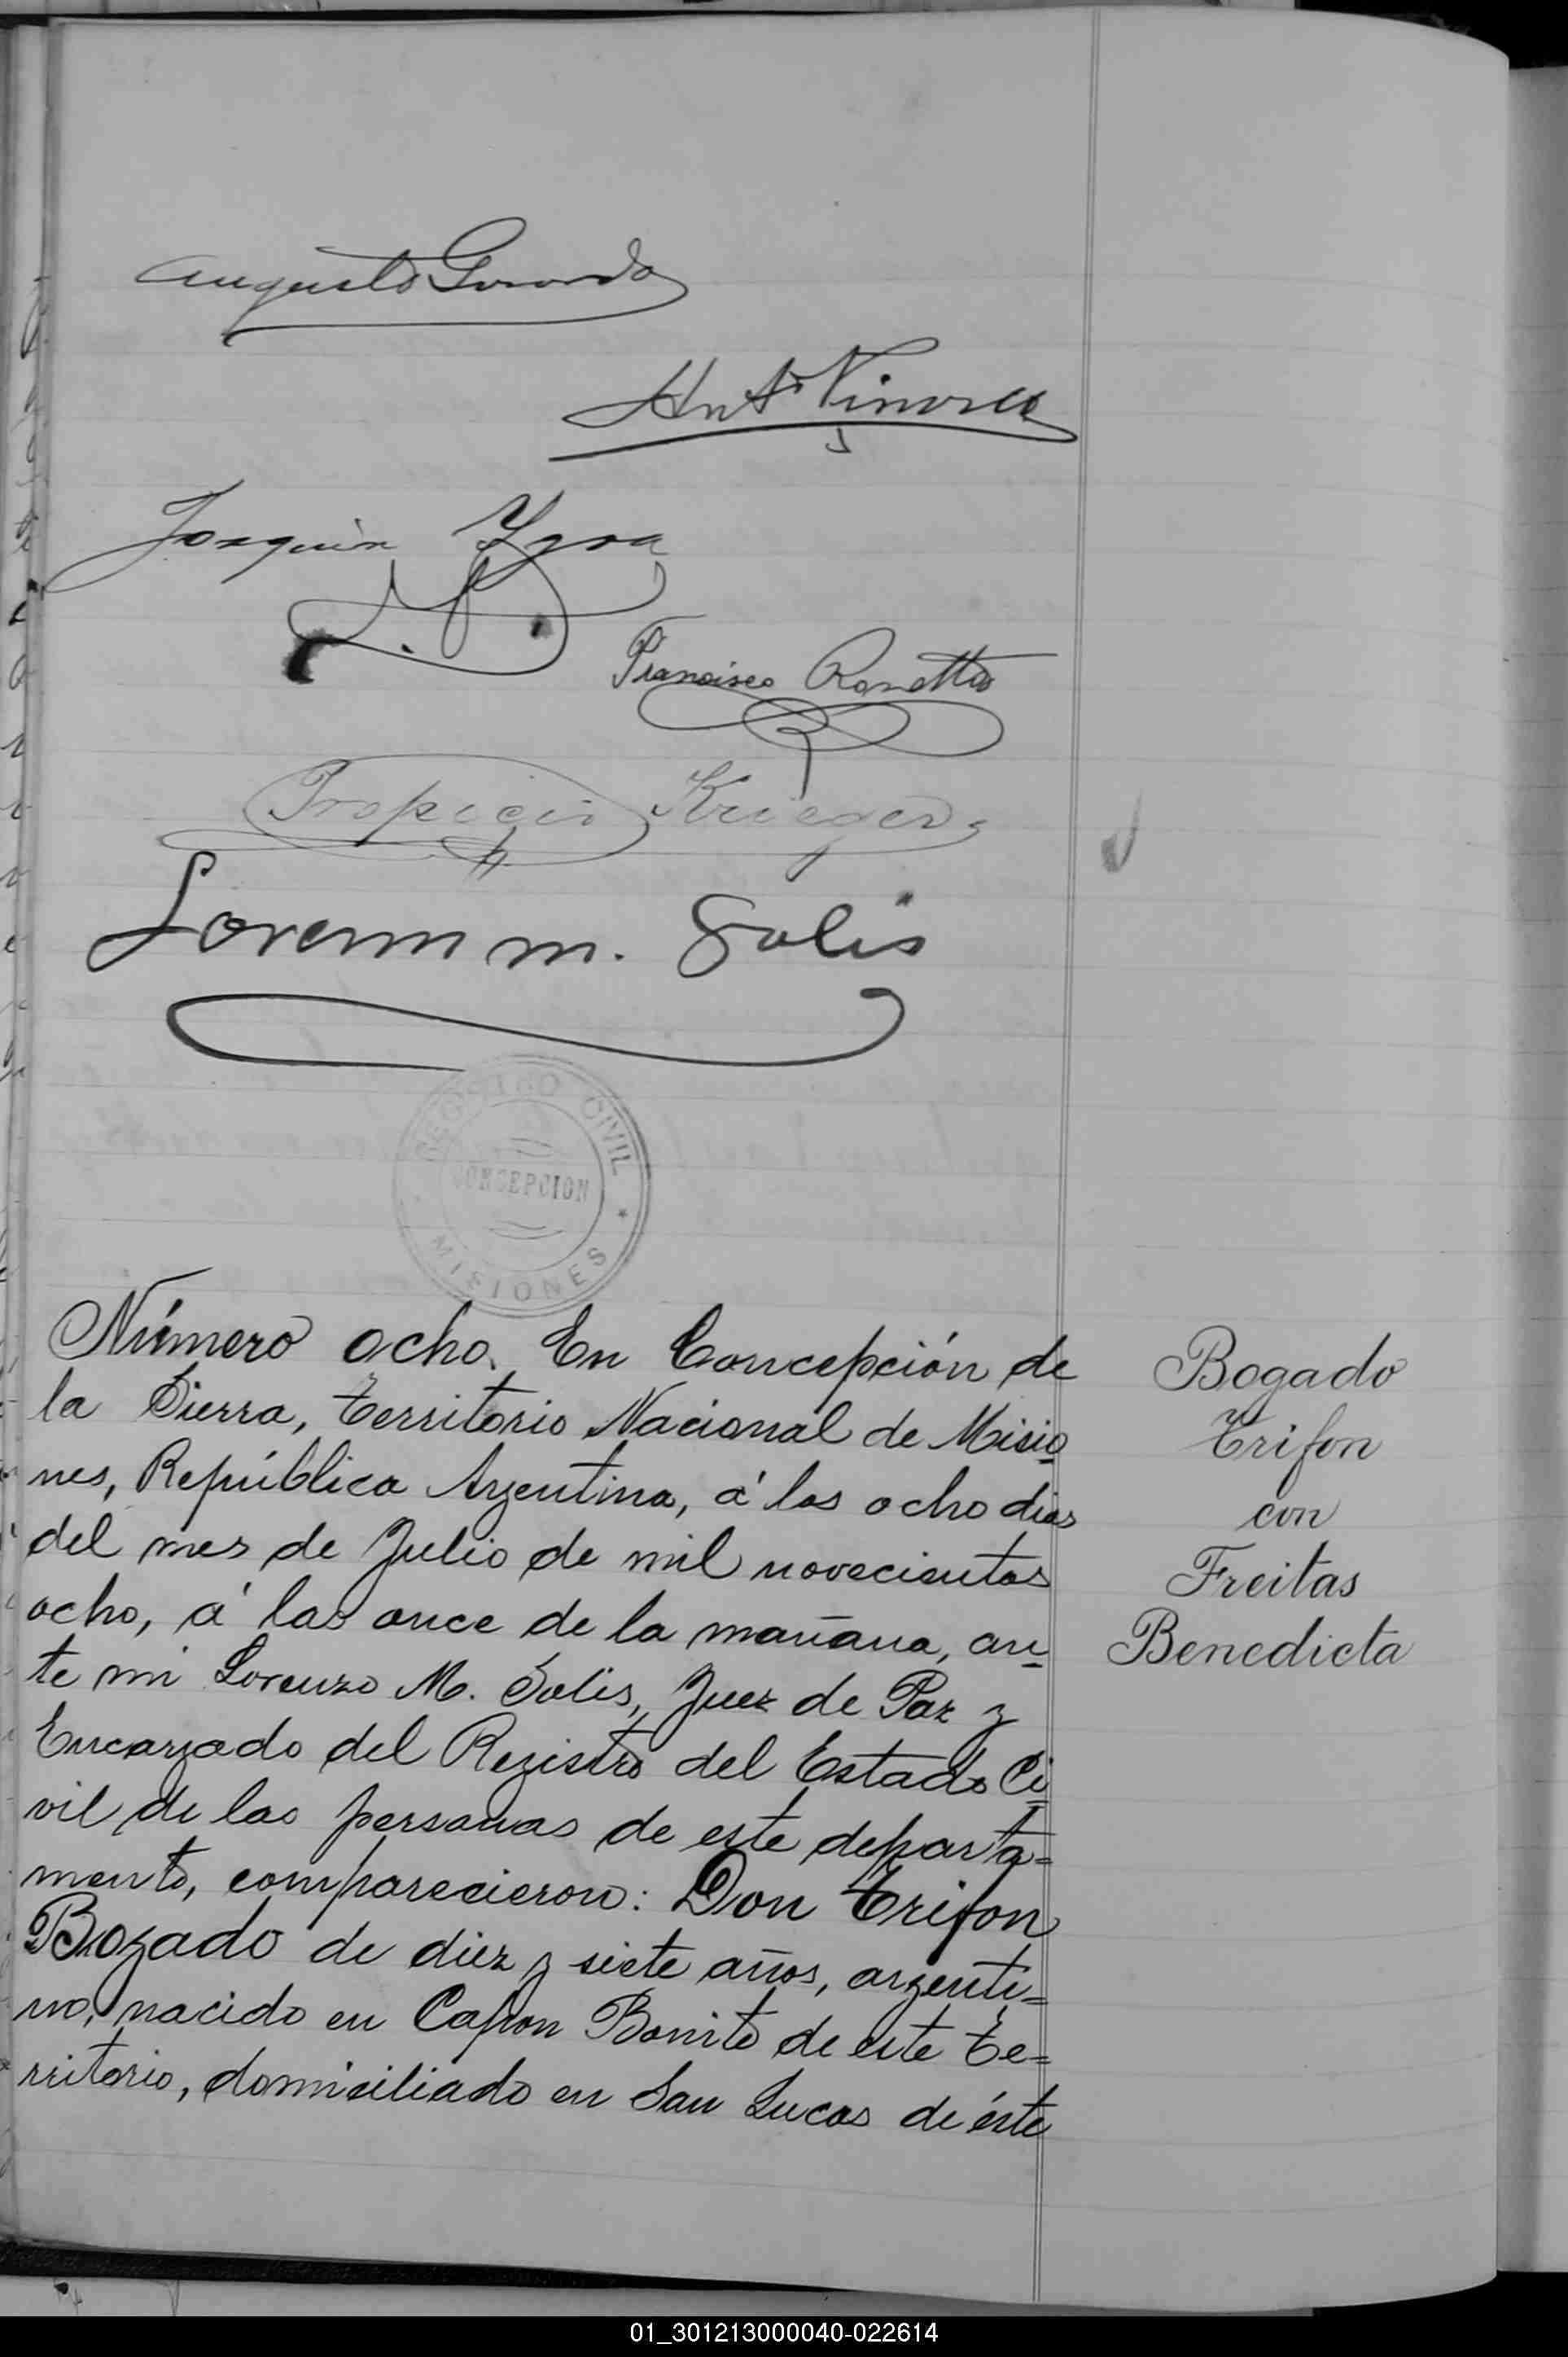 Augusto
Joaquin
Francisco
Krieger
Lorenzo M. Solis
REGISTRO CIVIL
CONCEPCION
MISIONES
Número ocho. En Concepción de
la Sierra, territorio Nacional de Misio
nes, República Argentina, á los ocho dias
del mes de Julio de mil novecientos
ocho, á las once de la mañana, an
te mi Lorenzo M. Solis, Juez de Paz y
Encargado del Registro del Estado Ci
vil de las personas de este departa=
mento, comparecieron: Don Trifon
Bogado de diez y siete años, argenti=
no, nacido en Capon Bonito de este te=
rritorio, domiciliado en San Lucas de éste
Bogado
Trifon
con
Freitas
Benedicta
01_301213000040-022614